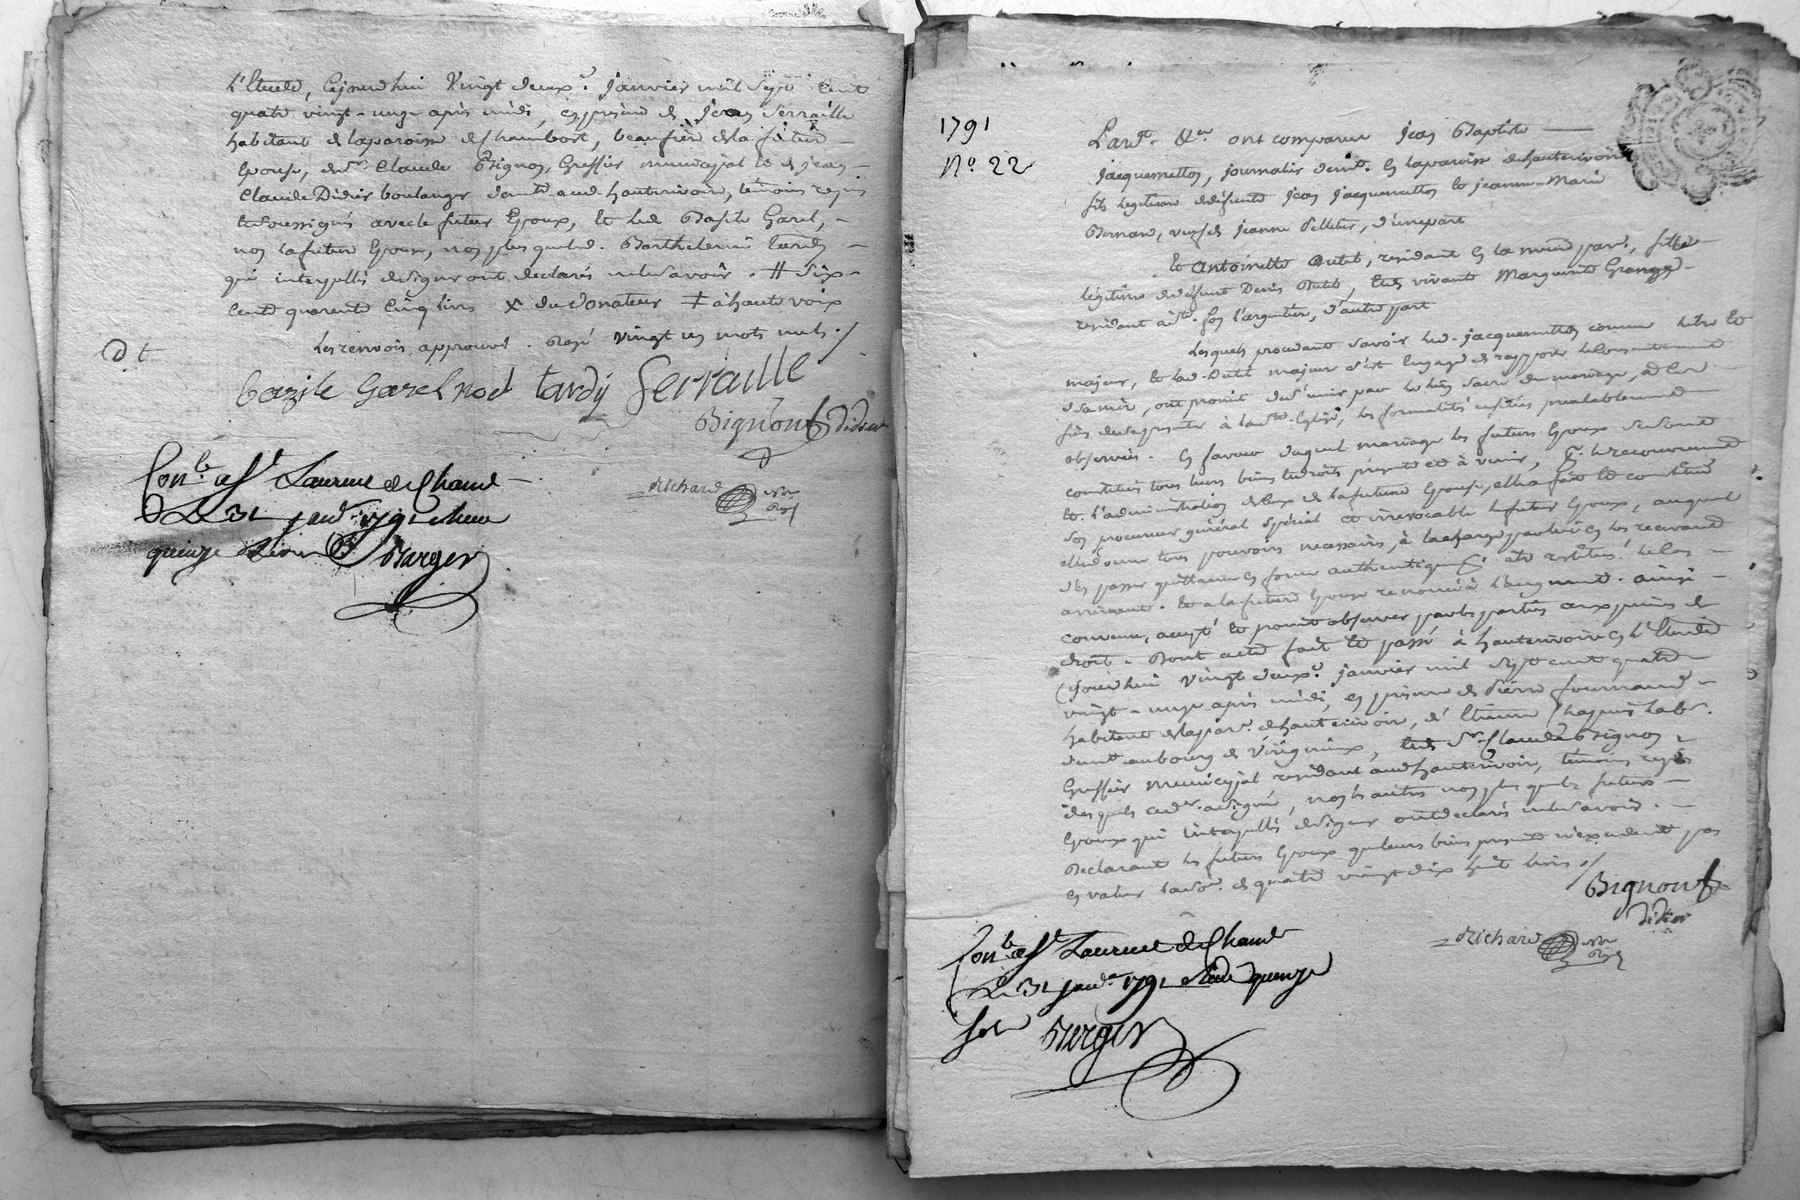 l'Etude, cejourdhui vingt deuxe. janvier mil sept cent
quatre vingt-onze après midi, en présence de jean Serraille
habitant de la paroisse de Chambost, beaufrère de la future
Epouse, de sr. Claude Bignon, Greffier municipal et de jean
Claude Didier boulanger demt. aud. hauterivoire, témoins requis
et soussignés avec le futur Epoux, et led. Basile Garel,
non la future Epouse, non plus que led. Barthelemi Tardy
qui interpellés de signer ont déclarés ne le savoir. # Six
cent quarente cinq livres x du donateur ‡ à haute voix
les renvois approuvés. Rayé vingt un mots nuls./
bazile Garel noel tardy Serraille
Bignon Didier
Richard nore
Conle. à St Laurent de Chamt
Le 31 janvr. 1791
quinze Barger
1791
No. 22
L'an &en ont comparu jean Baptiste
jacquemetton, journalier demt. en la paroisse de hauterivoire
fils légitime de défunts jean jacquemetton et jeanne-Marie
Bernard, veuf de jeanne Pelletier, d'une part
Et Antoinette Dutel, résidant en la même par., fille
légitime de défunt Denis Dutel, et de vivante Marguerite Grange
résidant à St. foy l'argentier, d'autre part
Lesquels procedant savoir led. jacquemetton comme libre et
majeur, et lad. Dutel majeure s'est engagé de rapporter le consentement
de sa mère, ont promit de s'unir par le lien sacré du mariage, à l'effet
de se présenter à la Ste. Eglise, les formalités usitées prealablement
observées. En faveur duquel mariage les futurs Epoux se sont
constitués tous leurs biens et droits présents et à venir, pr. le recouvrement
et l'administration de ceux de la future Epouse, elle a fait et constitué
son procureur général spécial et irrévocable le futur Epoux, auquel
elle donne tous pouvoirs necessaires, à la charge par lui en les recevant
d'en passer quittances en forme authentique, et restituer le cas
arrivant. Et a la future Epouse renoncé à l'augment. ainsi
convenu, accepté et promit observer par les parties aux peines de
droit. Dont acte fait et passé à hauterivoire en l'Etude
cejourdhui vingt deuxe. janvier mil sept cent quatre
vingt-onze après midi, en présence de Pierre fournand
habitant de la par. de hauterivoire, d'Etienne Chapuis labr.
demt. au bourg de Virigneux, et de Sr. Claude Bignon
Greffier municipal résidant aud. hauterivoire, témoins requis
desquels ced. a signé, non les autres non plus que les futurs
Epoux qui interpellés de signer ont déclarés ne le savoir.
Déclarant les futurs Epoux que leurs biens présents n'excedent pas
en valeur la so. de quatre vingt dix huit livres./
Bignon
Didier
Richard nore
Conle. à St Laurent de Chamt
Le 31 janvr. 1791 quinze
sols Berger